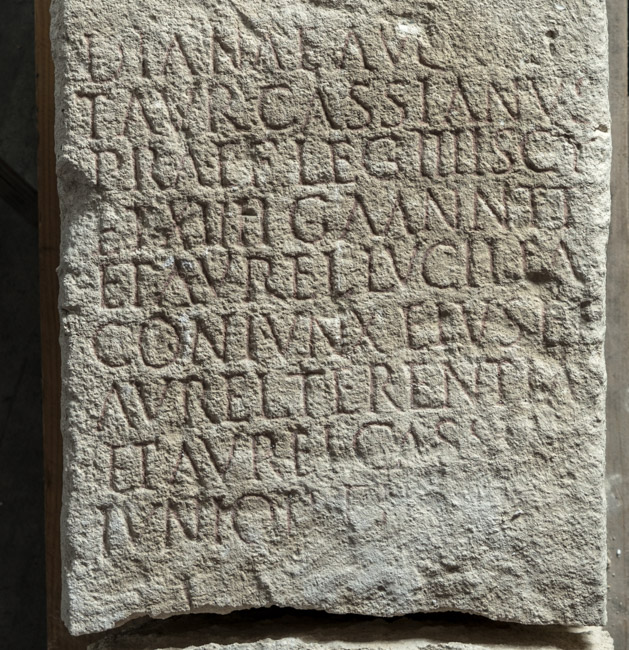 DIANAE AVG
TAVR CASSIANVS
PRAEF LEG IIII SCY
ET AVREL LVCILLA
CONIVNX EIVS ET
AVREL TERENTIVS
ET AVREL CASSI
IVNIOR